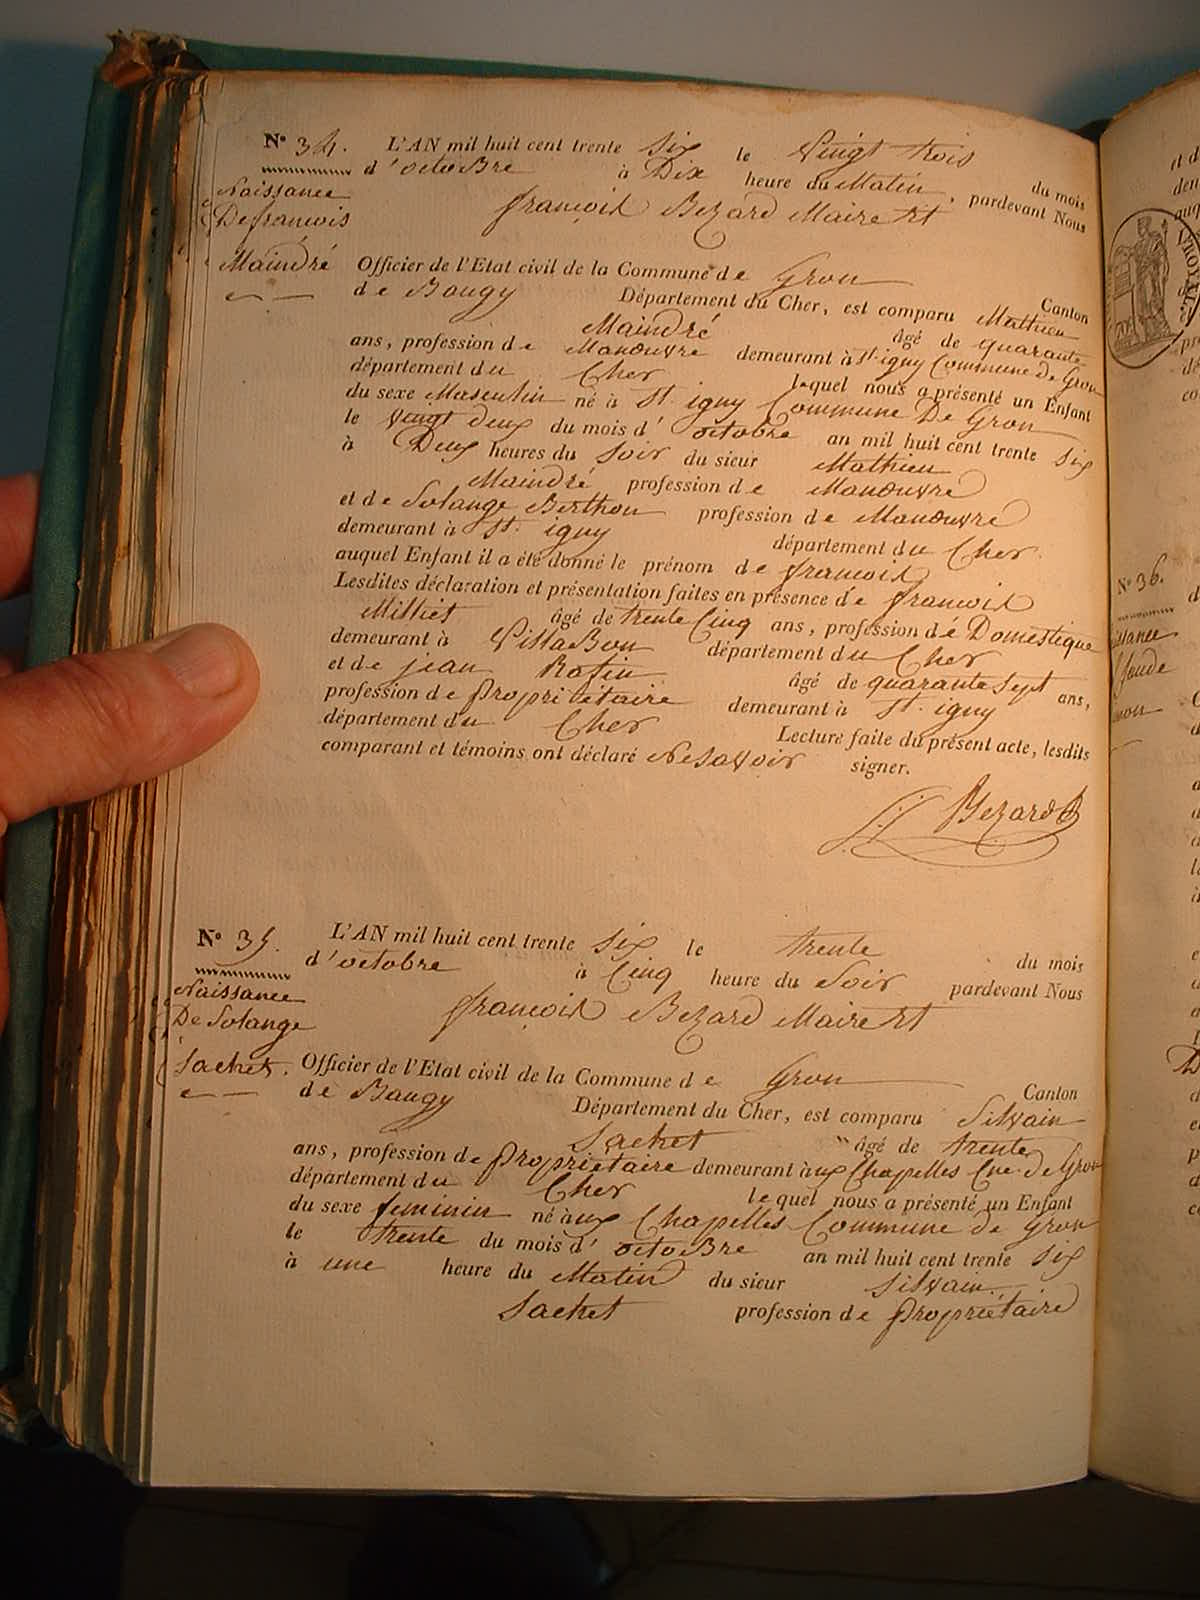 N° 34. L'AN mil huit cent trente six le Vingt trois du mois
d'octoBre à Dix heure du Matin, pardevant Nous
Naissance
De francois
françois Bezard Maire Et
Maindré
Officier de l'Etat civil de la Commune de Gron Canton
de Baugy Département du Cher, est comparu Mathieu
Maindré âgé de quarante
ans, profession de Manœuvre demeurant à St. igny Commune de Gron
département du Cher lequel nous a présenté un Enfant
du sexe Masculin né à St. igny Commune De Gron
le vingt deux du mois d'octobre an mil huit cent trente six
à Deux heures du Soir du sieur Mathieu
Maindré profession de Manœuvre
et de Solange Berthon profession de Manœuvre
demeurant à St. igny département du Cher.
auquel Enfant il a été donné le prénom de francois
Lesdites déclaration et présentation faites en présence de francois
Milliet âgé de trente Cinq ans, profession de Domestique
demeurant à VillaBon département du Cher
et de jean Rafin âgé de quarante sept ans,
profession de propriétaire demeurant à St. igny
département du Cher Lecture faite du présent acte, lesdits
comparant et témoins ont déclaré Ne Savoir signer.
Bezard
N° 35. L'AN mil huit cent trente six le trente du mois
d'octobre à Cinq heure du Soir pardevant Nous
Naissance
De Solange
francois Bezard Maire Et
Sachet.
Officier de l'Etat civil de la Commune de Gron Canton
de Baugy Département du Cher, est comparu Silvain
Sachet âgé de trente
ans, profession de propriétaire demeurant aux Chapelles Cne. de Gron
département du Cher lequel nous a présenté un Enfant
du sexe feminin né aux Chapelles Commune de Gron
le trente du mois d'octoBre an mil huit cent trente six
à une heure du Matin du sieur Silvain
Sachet profession de propriétaire
N° 36.